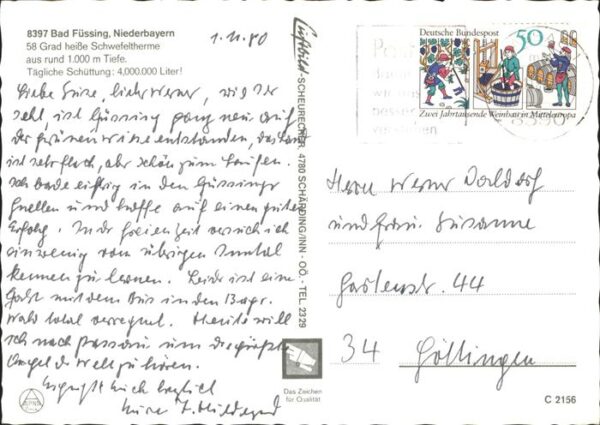 8397 Bad Füssing, Niederbayern
58 Grad heiße Schwefeltherme
aus rund 1.000 m Tiefe.
Tägliche Schüttung: 4,000.000 Liter!
1.11.80
Liebe Suse, lieber Werner, wie Ihr
seht, ist Füssing ganz neu auf
der grünen Wiese entstanden, das Land
ist sehr flach, aber schön zum Laufen.
Ich bade eifrig in den Füssinger
Quellen und hoffe auf einen guten
Erfolg. In der Freienzeit versuch ich
ein wenig vom übrigen Inntal
kennen zu lernen. Leider ist eine
Fahrt mit dem Bus in den Bayr.
Wald total verregnet. Heute will
ich nach Passau um die größte
Orgel der Welt zu hören.
Seid gegrüßt herzlich
Eure Hildegard
Luftbild-SCHEURECKER, 4780 SCHÄRDING/INN - OÖ. - TEL. 2329
Das Zeichen
für Qualität
Deutsche Bundespost
50
Zwei Jahrtausende Weinbau in Mitteleuropa
besser
verstehen
8399
Herrn Werner
und Frau Susanne
Gartenstr. 44
34 Göttingen
C 2156